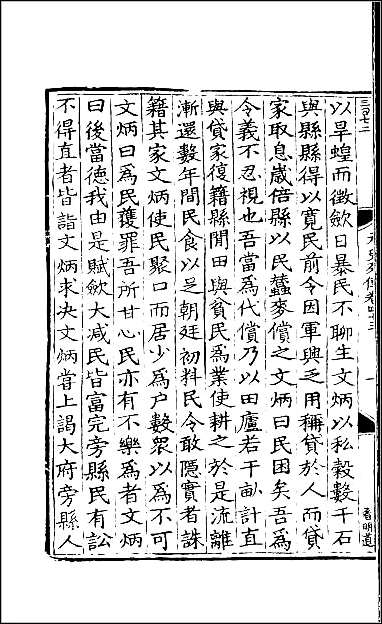 以旱蝗而徵歛日暴民不聊生文炳以私穀數千石
與縣縣得以寬民前令因軍興乏用稱貸於人而貸
家取息歲倍縣以民蠶麥償之文炳曰民困矣吾爲
令義不忍視也吾當爲代償乃以田廬若干畝計直
與貸家復籍縣閒田與貧民爲業使耕之於是流離
漸還數年間民食以足朝廷初料民令敢隱實者誅
籍其家文炳使民聚口而居少爲户數衆以爲不可
文炳曰爲民獲罪吾所甘心民亦有不樂爲者文炳
曰後當德我由是賦歛大减民皆富完旁縣民有訟
不得直者皆詣文炳求决文炳嘗上謁大府旁縣人